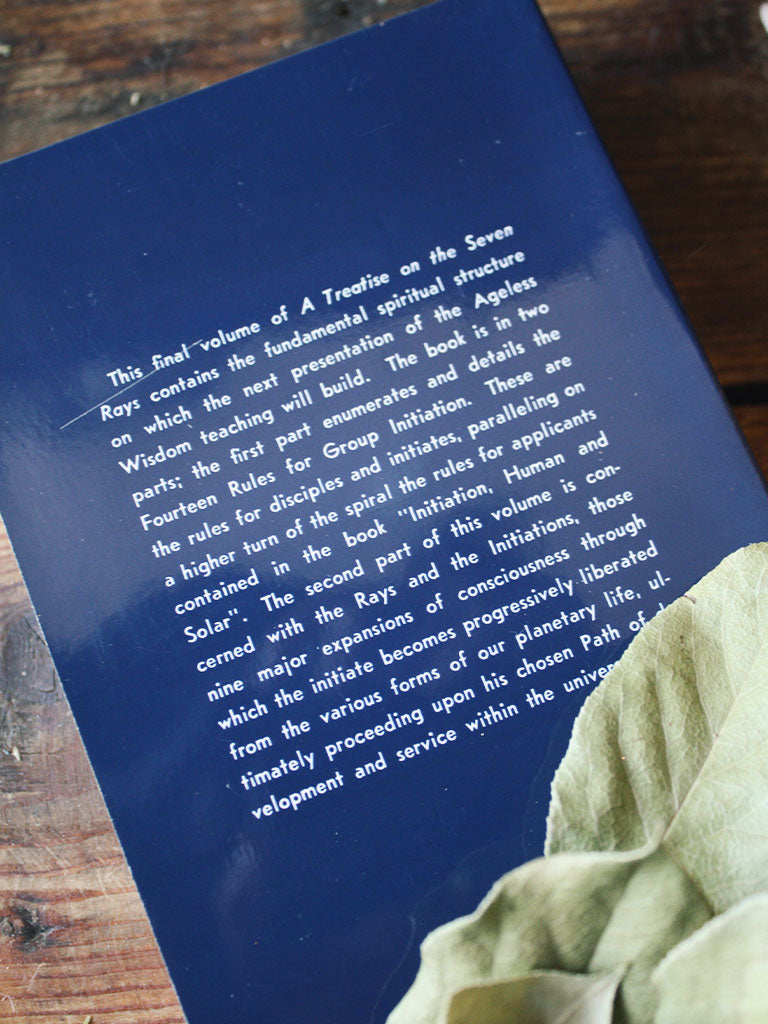 This final volume of A Treatise on the Seven
Rays contains the fundamental spiritual structure
on which the next presentation of the Ageless
Wisdom teaching will build. The book is in two
parts; the first part enumerates and details the
Fourteen Rules for Group Initiation. These are
the rules for disciples and initiates, paralleling on
a higher turn of the spiral the rules for applicants
contained in the book "Initiation, Human and
Solar". The second part of this volume is con-
cerned with the Rays and the Initiations, those
nine major expansions of consciousness through
which the initiate becomes progressively liberated
from the various forms of our planetary life, ul-
timately proceeding upon his chosen Path of
velopment and service within the